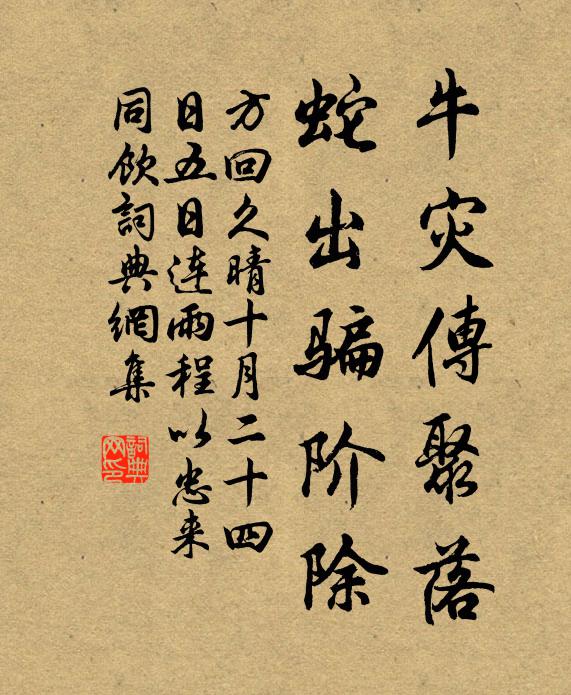 牛灾傳聚落
蛇出骗阶除
方回久晴十月二十四
日五日连雨程以忠来
同飲詞典網集
詞典网印